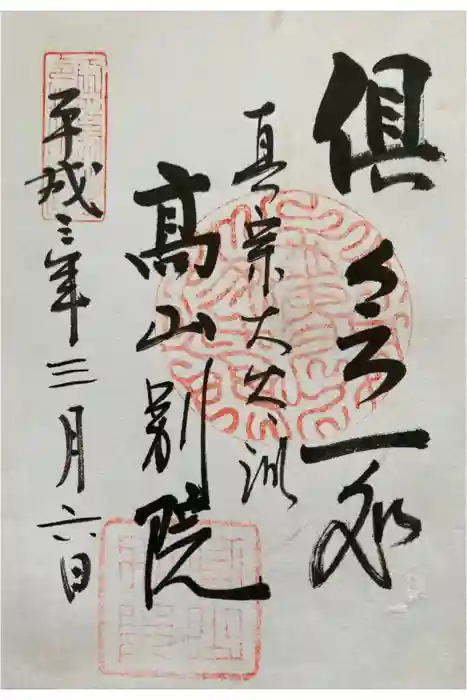 倶会一処
真宗大谷派
高山別院
平成三年三月六日